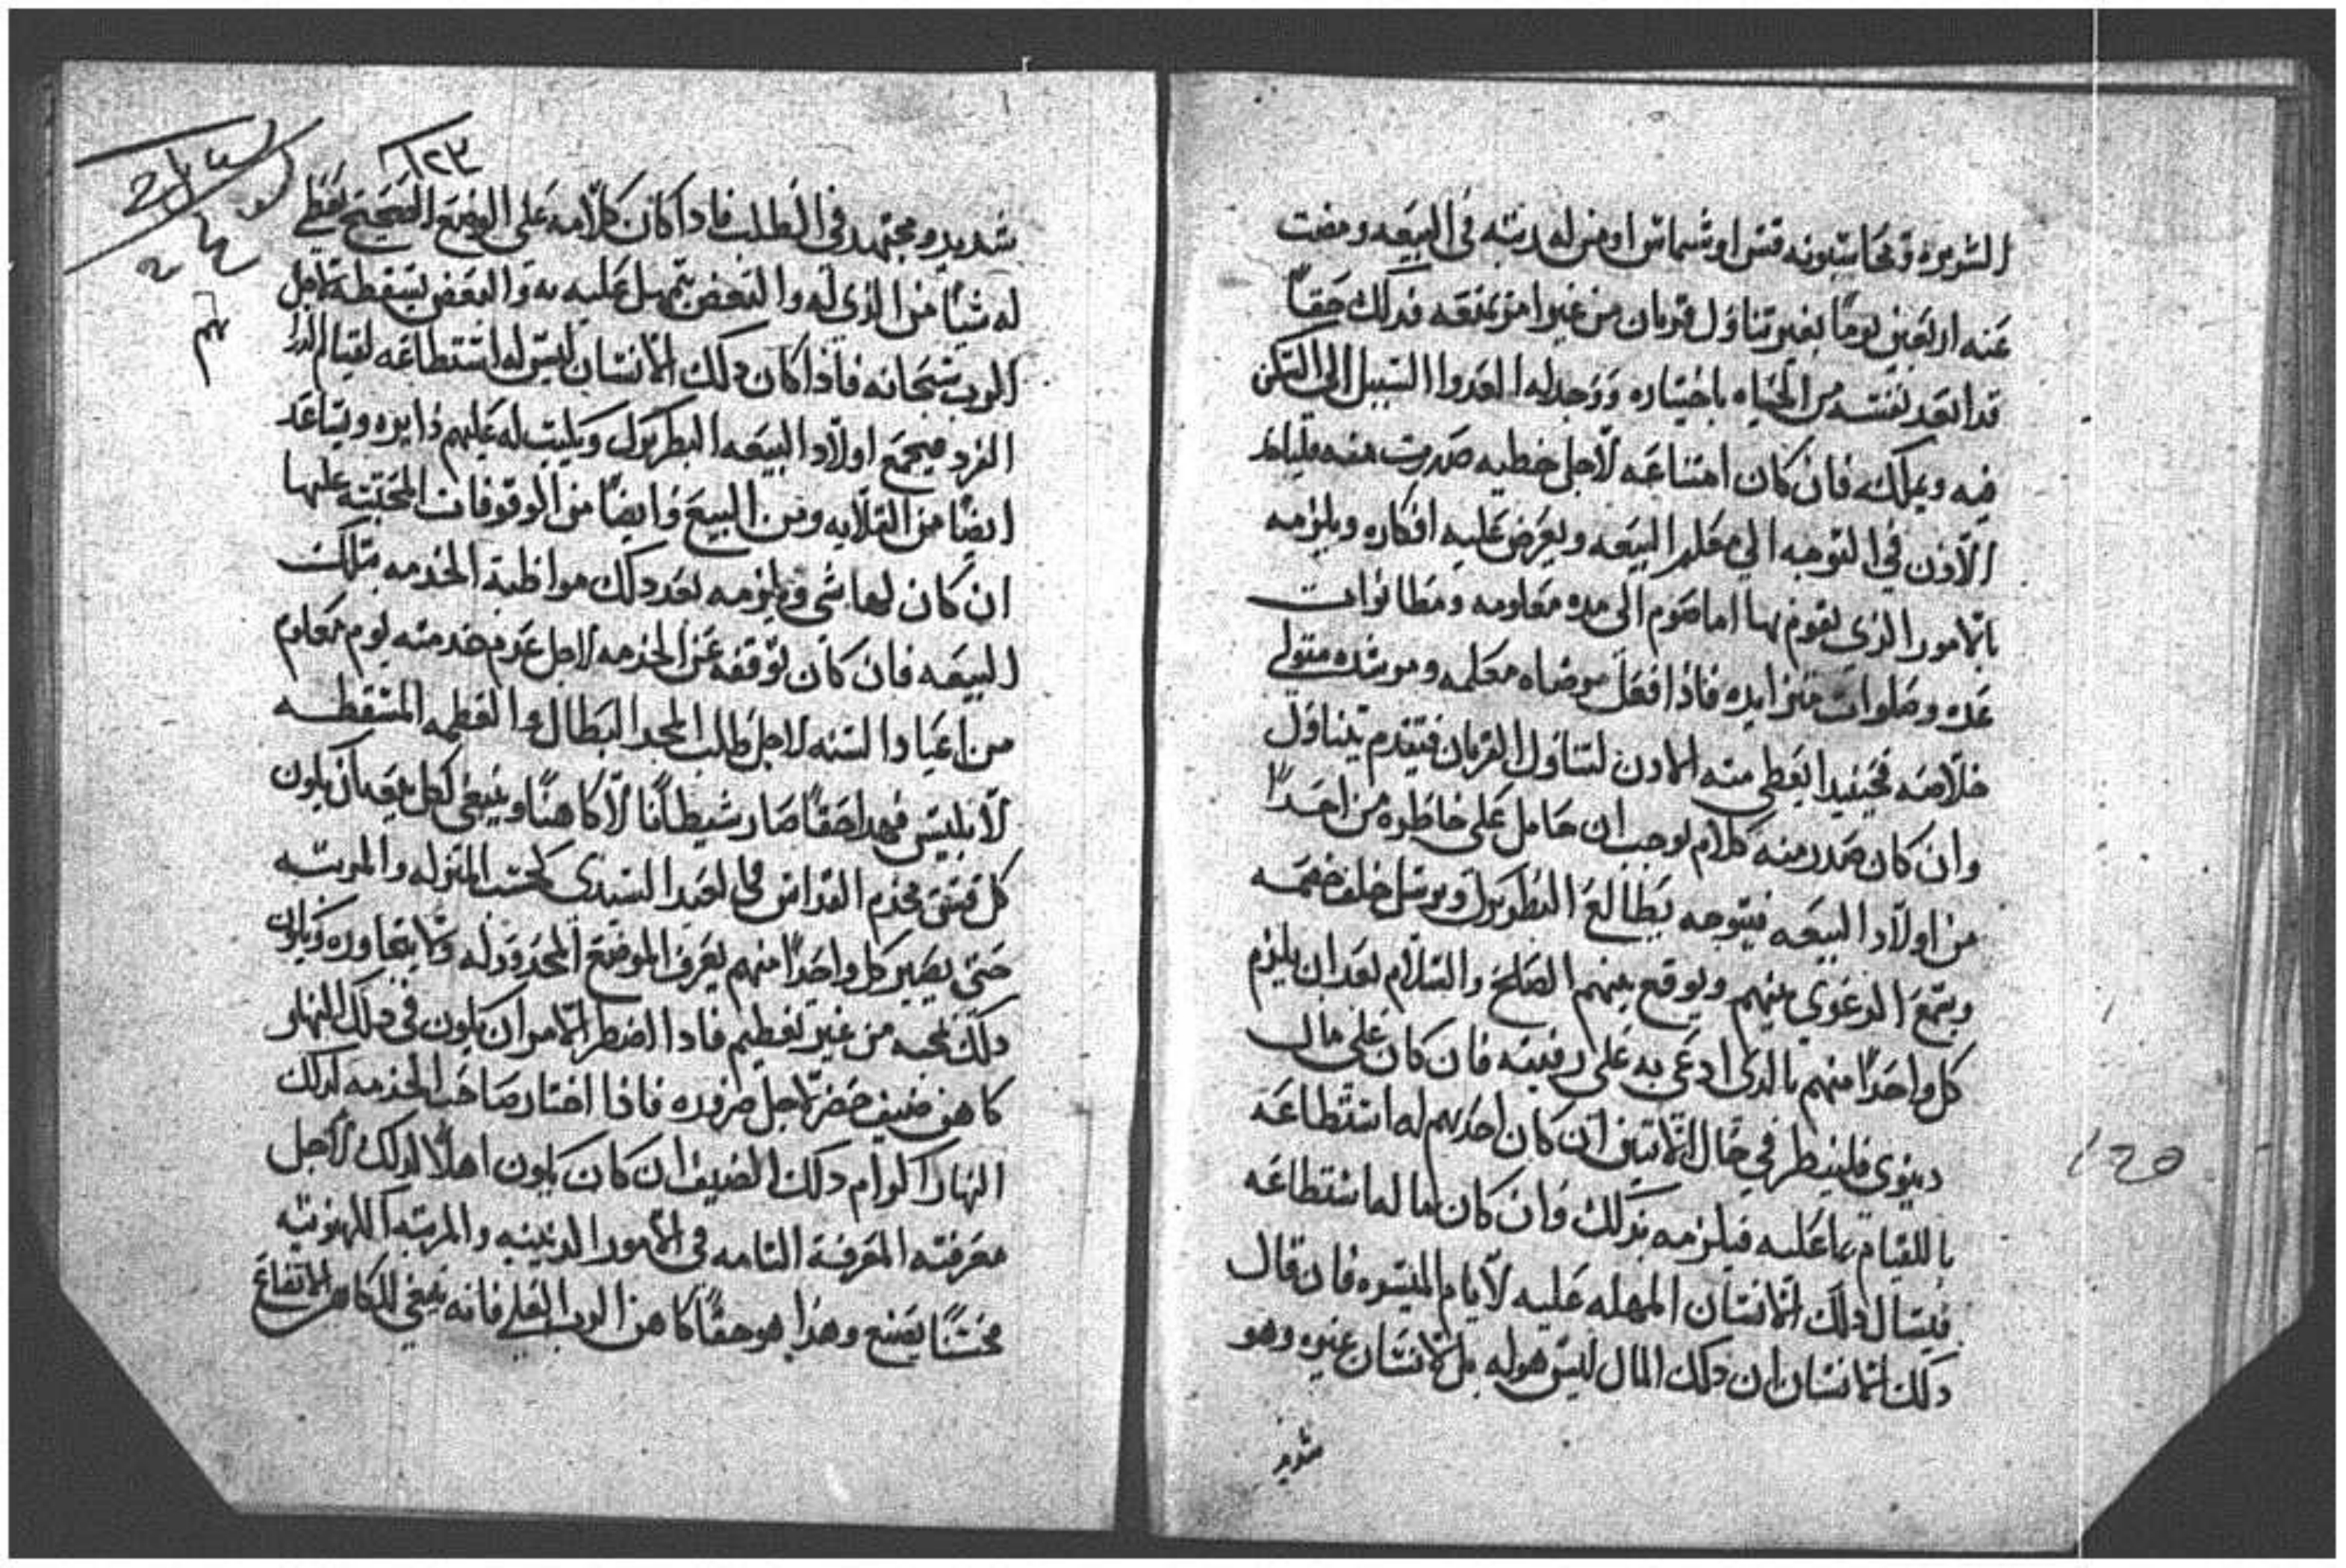 الشريره وتحاشبونه قسس او شماس او من له رتبه في البيعه ومضت
عنه اربعين يوماً بغير تناول قربان من غير امر يمنعه فدلك حقاً
قد ابعد نفسه من الحياه باختياره ووجد له العدوا السبيل الى التمكن
فيه ويملكه فان كان امتناعه لاجل خطيه صدرت منه
الاذن في التوجه الي معلم البيعه ويعرض عليه افكاره ويلزمه
بالامور الذي يقوم بها اما صوم الى مده معلومه ومطانوات
عده وصلوات متزايده فاذا فعل مرضاه معلمه ومرشده متولي
خلاصه فحينيدا يعطي منه الادن لتناول القربان فيتقدم يتناول
وان كان صدر منه كلام لوجب ان حامل على خاطره من احداً
من اولاد البيعه فيتوجه يطالع البطريرك ويرسل خلف خصمه
ويسمع الدعوي بينهم ويوقع بينهم الصلح والسلام بعد ان يلزم
كل واحداً منهم بالدى ادعى به على رفيقه فان كان على مال
دنيوي فلينظر في حال الاتنين ان كان احدهم له استطاعه
باللقيام بما عليه فيلزمه بذلك وان كان ما لها ستطاعه
فيسال دلك الانسان المهله عليه لايام الميسره فان قال
دلك الانسان ان دلك المال ليس هو له بل لانسان غيره وهو
شديد
١٢٣
شديد ومجتهد في الطلب فاداكان كلامه على الوضع الصحيح يعطي
له شياً من الذي له والبعض يتمهل عليه به والبعض يسقطه لاجل
الرب سبحانه فاذا كان دلك الانسان ليس له استطاعه لقيام
الفرد فيجمع اولاد البيعه البطريرك ويكتب له عليهم دايره ويساعد
ايضاً من القلايه ومن البيع وايضاً من الوقوفات المحبسه عليها
ان كان لها شي ويلزمه بعد دلك مواظبة الخدمه بتلك
البيعه فان كان توقفه عن الخدمه لاجل عدم خدمته يوم معلوم
من اعياد السنه لاجل طلب المجد البطال والعظمه المسقطه
لابليس فهدا حقاً صار شيطانا لا كاهنا وينبغي لكل بيعه ان يكون
كل قسيس يخدم القداس في العيد السيدي كحسب المنزله والمرتبه
حتى يصير كل واحداً منهم يعرف الموضع المحدود له ولا يتعاوره ويكون
دلك بمحبه من غير تعظيم فادا اضطر الامر ان يكون في دلك النهار
كاهن ضيف حضر لاجل صرفده فاذا اختار صاحب الخدمه لدلك
النهار اكرام دلك الضيف ان كان يكون اهلا لدلك لاجل
معرفته المعرفة التامه في الامور الدينيه والمرتبه الكهنوتيه
فحسناً يصنع وهذا هو حقاً كاهن الرب العلي فانه ينبغي للكاهن الاتضاع
120